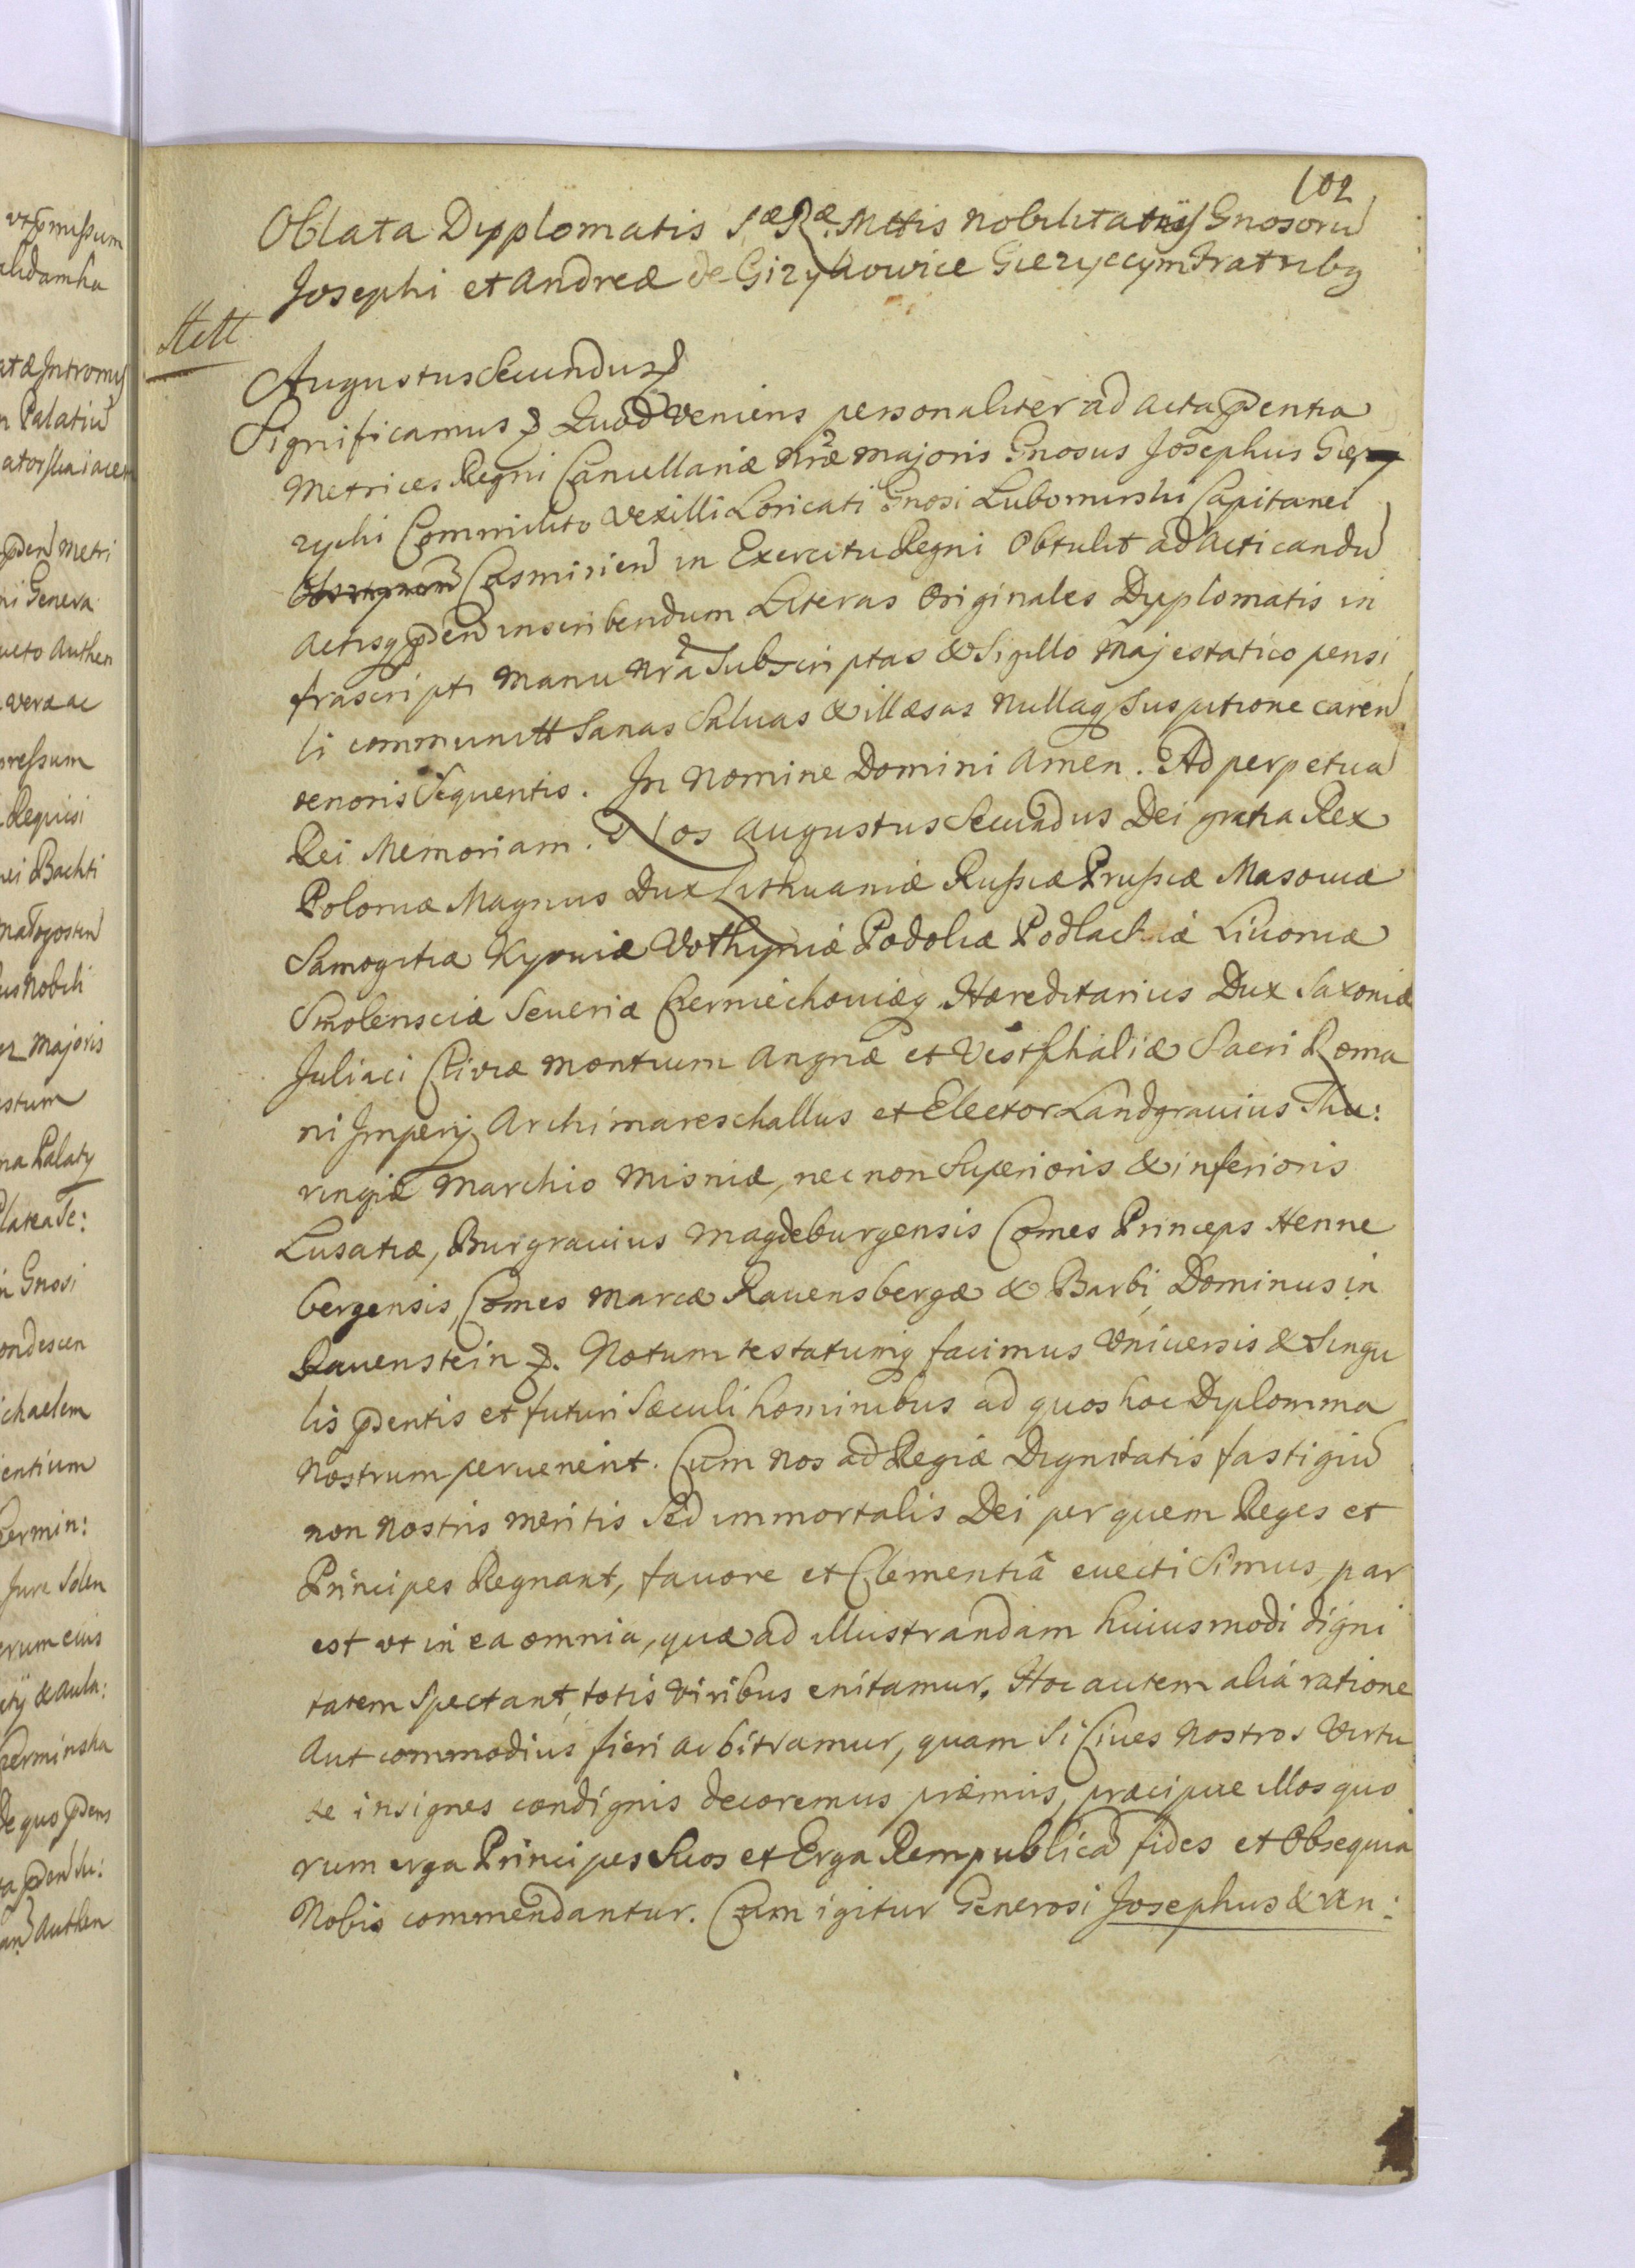 102
Oblata Dypplomatis S. R. Mttis Nobilitatÿs Gnosorũ
Josephi et Andreæ de Gizykowice Giezyccym Fratribq
Augustus Secundus
Significamus Quod Veniens personaliter ad Acta pñtia
Metrices Regni Cancellariæ Nræ Majoris Gnosus Josephus Giey
zycki Commilito Vexilli Loricati Gnosi Lubomirski Capitanei
Casmirien̄ in Exercitu Regni Obtulit ad Acticandũ
Actisq pn̄ inscribendum Literas Originales Dyplomatis in
frascripti Manu Nrã Subscriptas & Sigillo Majestatico pensi
li communitt Sanas Saluas & illæsas Nullaq Suspitione caren̄
tenoris Sequentis. In Nomine Domini Amen. Ad perpetuã
Rei Memoriam. Nos Augustus Secundus Dei gratia Rex
Poloniæ Magnus Dux Lithuaniæ Russiæ Prussiæ Masouiæ
Samogitiæ Kyouiæ Volhyniæ Podoliæ Podlachiæ Liuoniæ
Smolensciæ Seueriæ Czerniechouiæq Hæreditarius Dux Saxoniæ
Juliaci Cliviæ Montium Angriæ et Vestphaliæ Sacri Roma
ni Imperÿ Archimareschallus et Elector Landgrauius Thu:
ringiæ Marchio Misniæ, nec non Superioris & inferioris
Lusatiæ, Burgrauius Magdeburgensis Comes Princeps Henne
bergensis, Comes Marcæ Rauensbergæ & Barbi, Dominus in
Rauenstein. Notum testatumq facimus Vniuersis & Singu
lis pñtis et futuri Sæculi hominibus ad quos hoc Dyplomma
Nostrum peruenerit. Cum Nos ad Regiæ Dignitatis fastigiũ
non Nostris meritis Sed immortalis Dei per quem Reges et
Principes Regnant, fauore et Clementiâ euecti Simus, par
est vt in ea omnia, quæ ad illustrandam huiusmodi digni
tatem Spectant, totis Viribus enitamur. Hoc autem aliâ ratione
Aut commodius fieri arbitramur, quam Si Ciues Nostros Virtu
te insignes condignis decoremus præmiis, præcipue illos quo
rum erga Principes Suos et Erga Rempublicã fides et Obsequia
Nobis commendantur. Cum igitur Generosi Josephus & An: